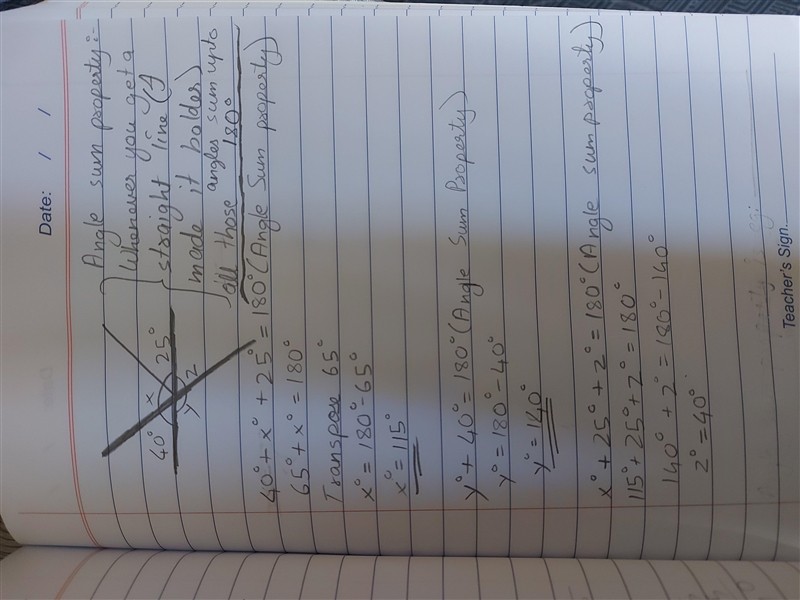 Date: / /
Angle sum property:-
Whenever you get a
straight line (I
made it bolder)
all those angles sum upto
180°
40° x 25°
y z
40° + x° + 25° = 180° (Angle Sum property)
65° + x° = 180°
Transpose 65°
x° = 180° - 65°
x° = 115°
y° + 40° = 180° (Angle Sum Property)
y° = 180° - 40°
y° = 140°
x° + 25° + z° = 180° (Angle sum property)
115° + 25° + z° = 180°
140° + z° = 180° - 140°
z° = 40°
Teacher's Sign.